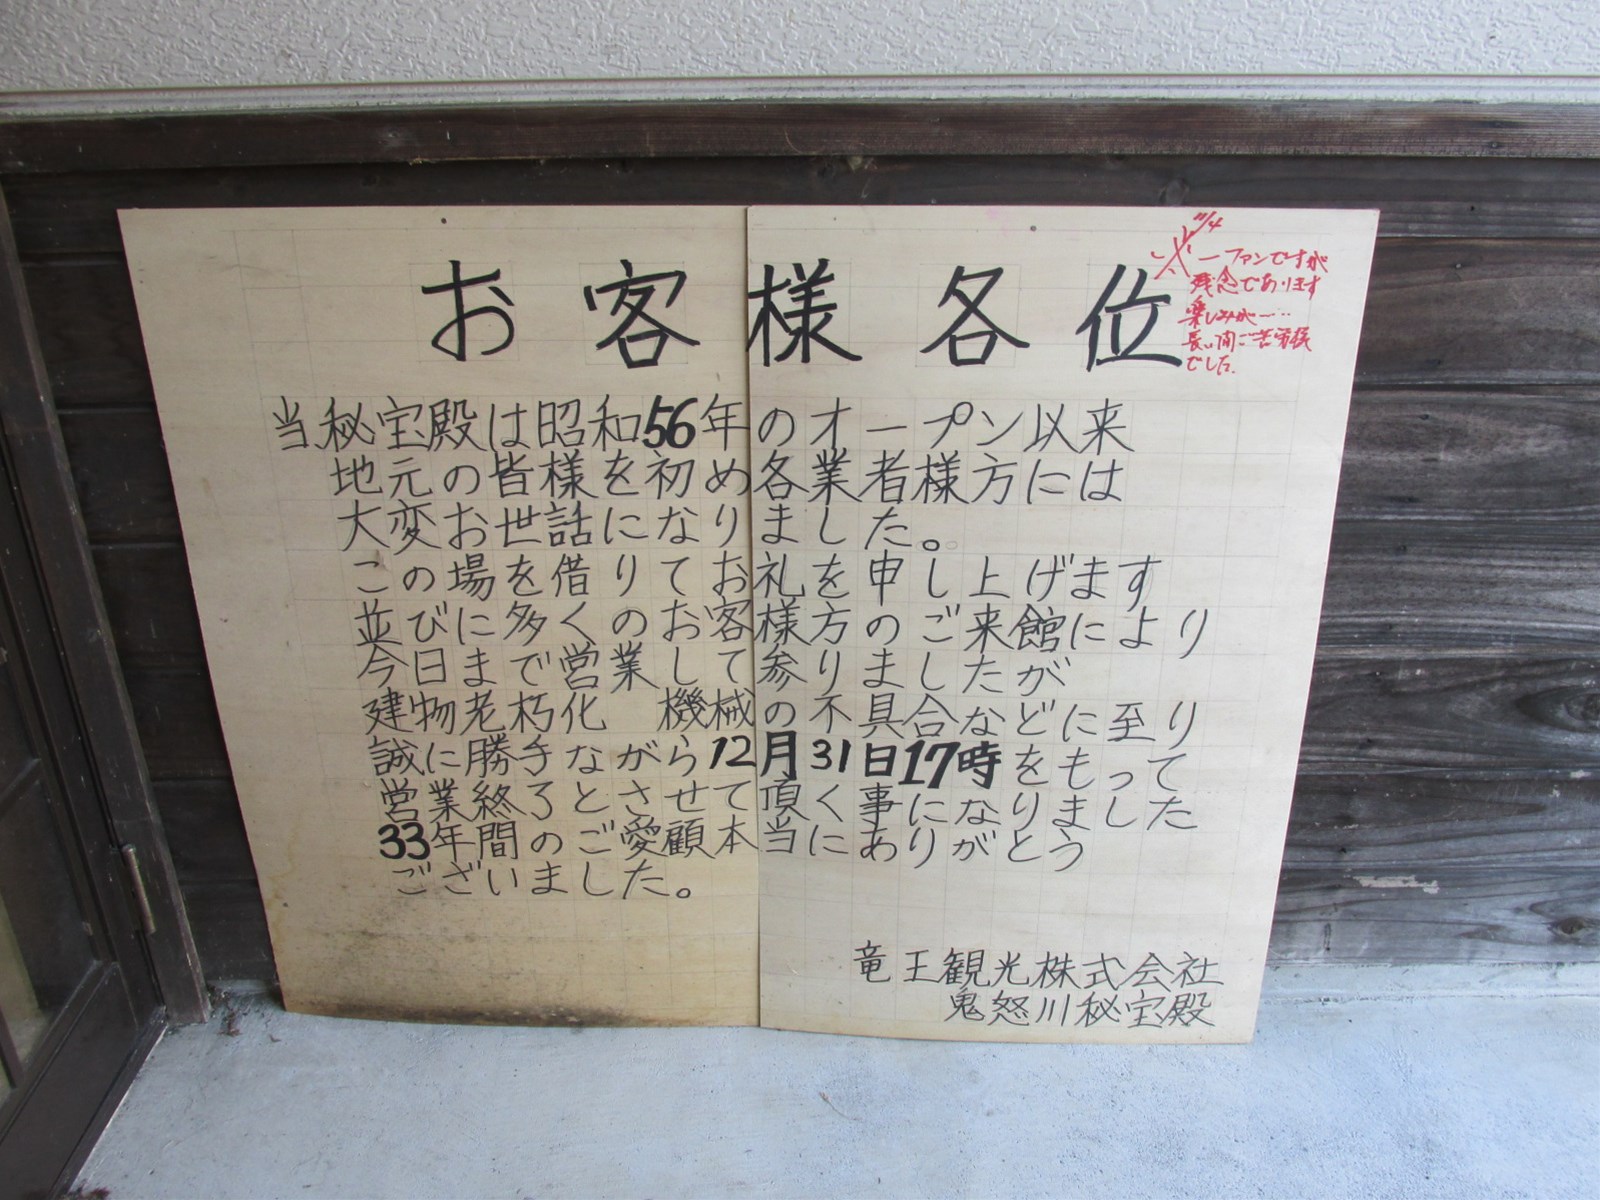 お客様各位
当秘宝殿は昭和56年のオープン以来
地元の皆様を初め各業者様方には
大変お世話になりました。
この場を借りてお礼を申し上げます
並びに多くのお客様方のご来館により
今日まで営業おして参りましたが
建物老朽化 機械の不具合などに至り
誠に勝手ながら12月31日17時をもって
営業終了とさせて頂く事になりました
33年間のご愛顧本当にありがとう
ございました。
竜王観光株式会社
鬼怒川秘宝殿
11/4
一ファンですが
残念であります
楽しみが……
長い間ご苦労様
でした.